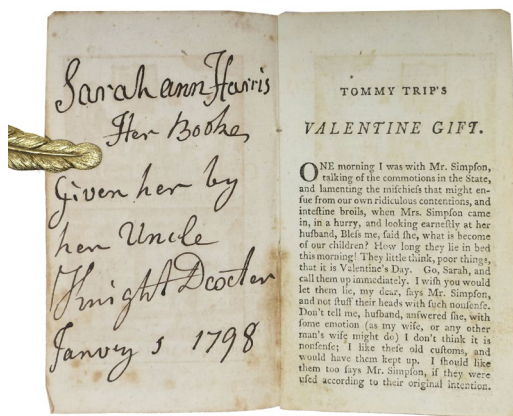 Sarah ann Harris
Her Booke
Given her by
her Uncle
Knight Dexter
Janury 5 1798
TOMMY TRIP'S
VALENTINE GIFT.
ONE morning I was with Mr. Simpſon,
talking of the commotions in the State,
and lamenting the miſchiefs that might en-
ſue from our own ridiculous contentions, and
inteſtine broils, when Mrs. Simpſon came
in, in a hurry, and looking earneſtly at her
huſband, Bleſs me, ſaid ſhe, what is become
of our children? How long they lie in bed
this morning! They little think, poor things,
that it is Valentine's Day. Go, Sarah, and
call them up immediately. I wiſh you would
let them lie, my dear, ſays Mr. Simpſon,
and not ſtuff their heads with ſuch nonſenſe.
Don't tell me, huſband, anſwered ſhe, with
ſome emotion (as my wife, or any other
man's wife might do) I don't think it is
nonſenſe; I like theſe old cuſtoms, and
would have them kept up. I ſhould like
them too ſays Mr. Simpſon, if they were
uſed according to their original intention.